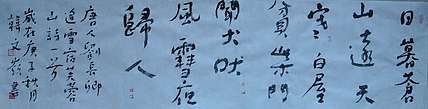 日暮蒼
山遠天
寒白屋
貧柴門
聞犬吠
風雪夜
歸人
唐人劉長卿
逢雪宿芙蓉
山詩一首
歲在庚子秋月
韓文書